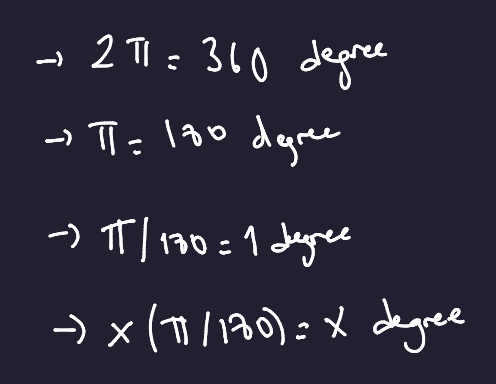 → 2π = 360 degree
→ π = 180 degree
→ π/180 = 1 degree
→ x(π/180) = x degree